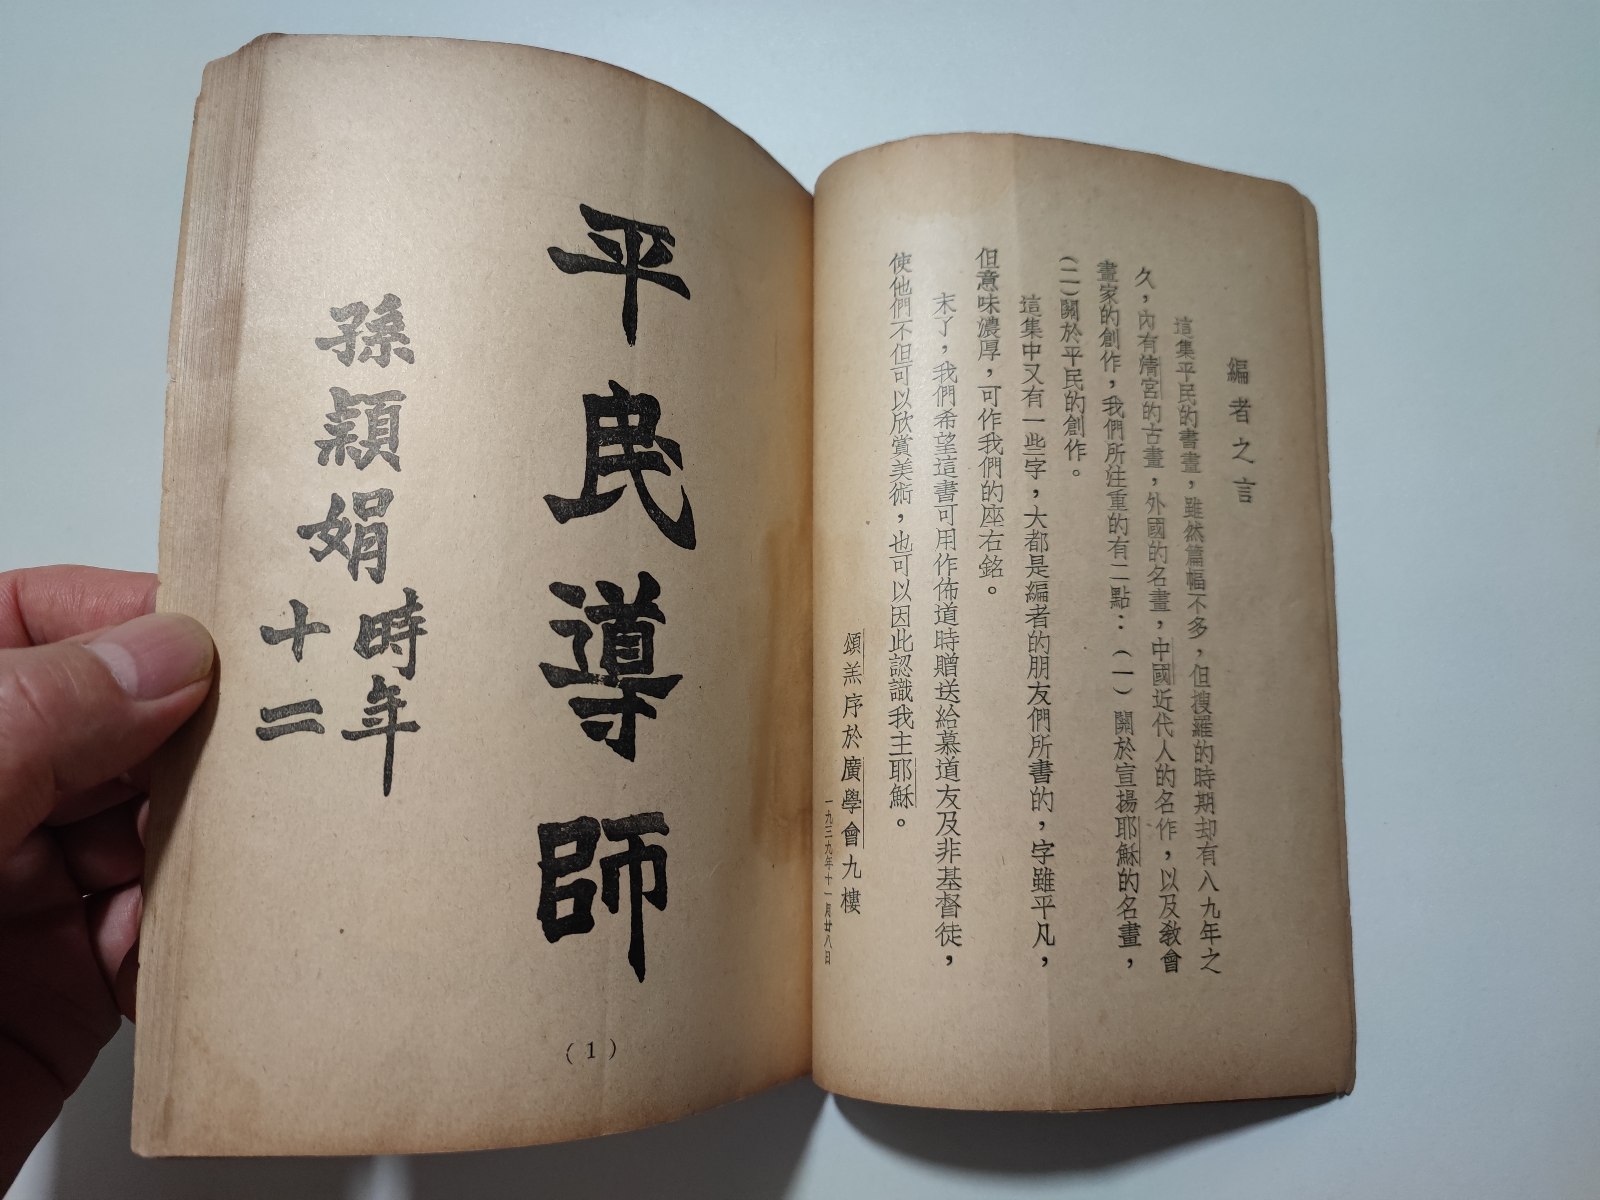 編者之言
這集平民的書畫，雖然篇幅不多，但搜羅的時期却有八九年之
久，內有清宮的古畫，外國的名畫，中國近代人的名作，以及教會
畫家的創作，我們所注重的有二點：（一）關於宣揚耶穌的名畫，
（二）關於平民的創作。
這集中又有一些字，大都是編者的朋友們所書的，字雖平凡，
但意味濃厚，可作我們的座右銘。
末了，我們希望這書可用作佈道時贈送給慕道友及非基督徒，
使他們不但可以欣賞美術，也可以因此認識我主耶穌。
頌羔序於廣學會九樓
一九三九年十一月廿八日
平民導師
孫穎娟時年
十二
（1）